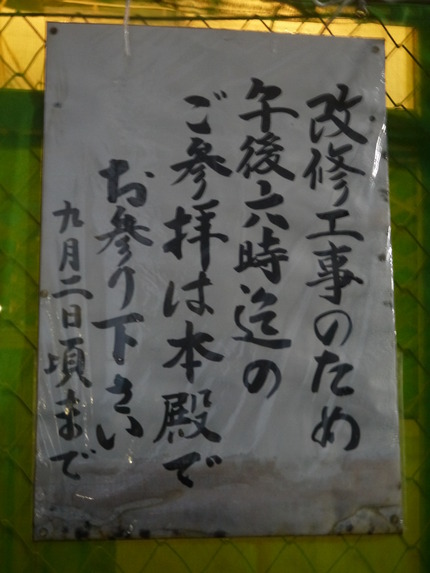 改修工事のため
午後六時迄の
ご参拝は本殿で
お参り下さい
九月二日頃まで